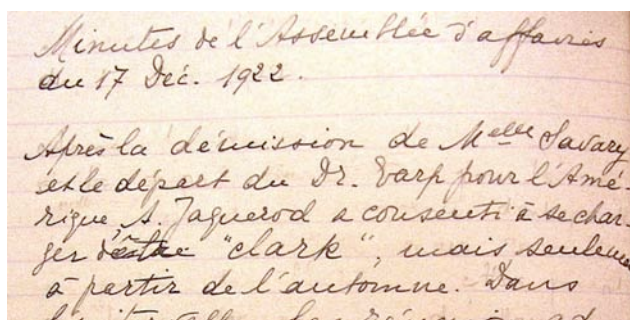 Minutes de l'Assemblée d'affaires
du 17 Déc. 1922.
Après la démission de Melle Savary
et le départ du Dr. Earp pour l'Amé-
rique, A. Jaquerod a consenti à se char-
ger d'être "clark", mais seuleme
à partir de l'automne. Dans